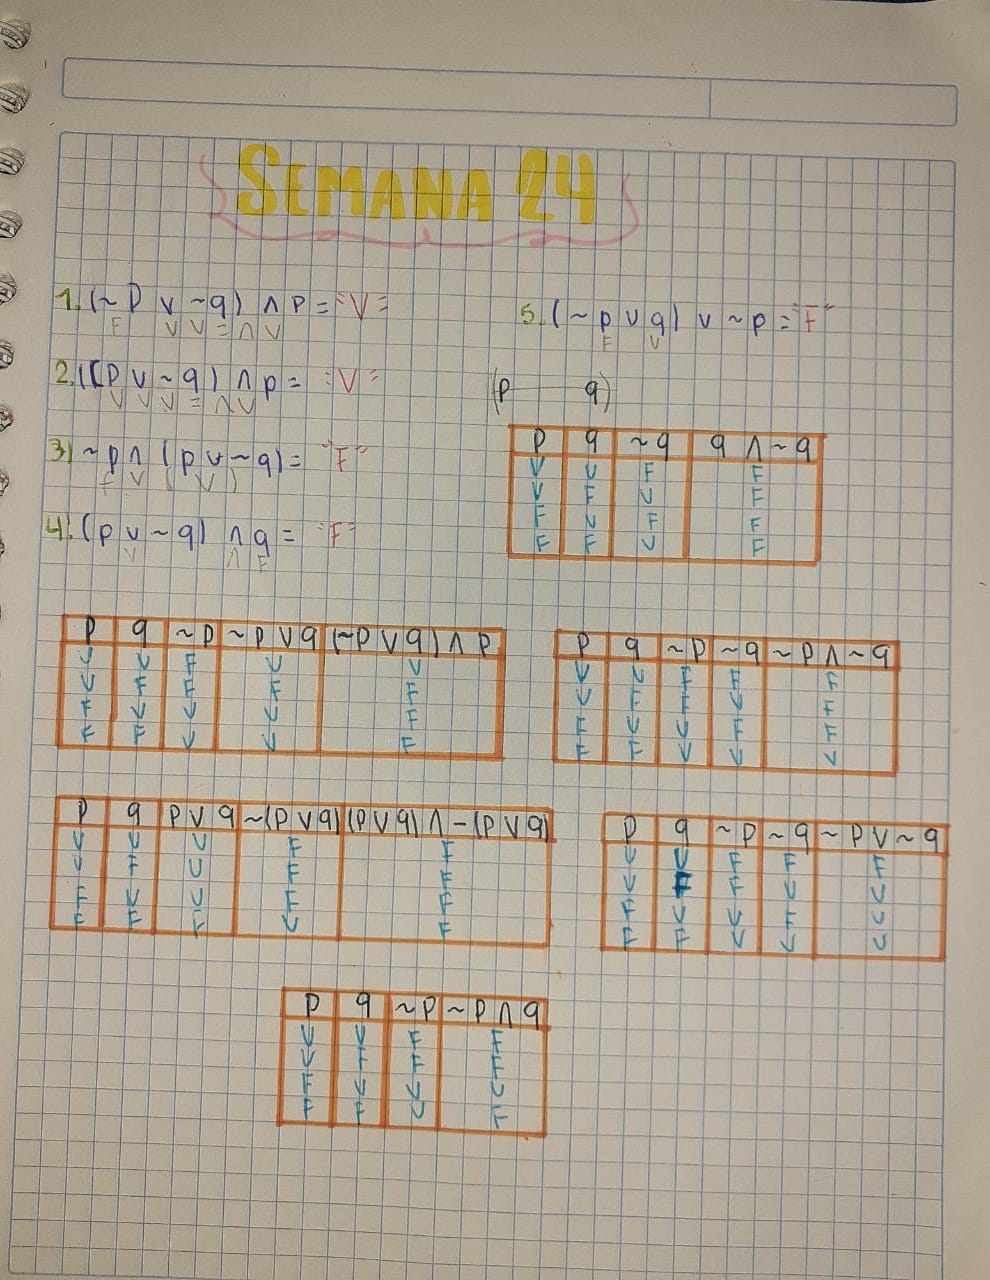 SEMANA 24
1. (~P ∨ ~q) ∧ P = "V"
F V V = ∧ V
2. ((P ∨ ~q) ∧ p = "V"
V V V = ∧ V
3) ~p ∧ (p ∨ ~q) = "F"
F V ( V )
4). (p ∨ ~q) ∧ q = "F"
V ∧ F
5. (~p ∨ q) ∨ ~p = "F"
F V
(p q)
P q ~q q ∧ ~q
V V F F
V F V F
F V F F
F F V F
P q ~P ~P ∨ q (~P ∨ q) ∧ P
V V F V V
V F F F F
F V V V F
F F V V F
P q ~P ~q ~P ∧ ~q
V V F F F
V F F V F
F V V F F
F F V V V
P q P ∨ q ~(P ∨ q) (P ∨ q) ∧ -(P ∨ q)
V V V F F
V F V F F
F V V F F
F F F V F
P q ~P ~q ~P ∨ ~q
V V F F F
V F F V V
F V V F V
F F V V V
P q ~P ~P ∧ q
V V F F
V F F F
F V V V
F F V F